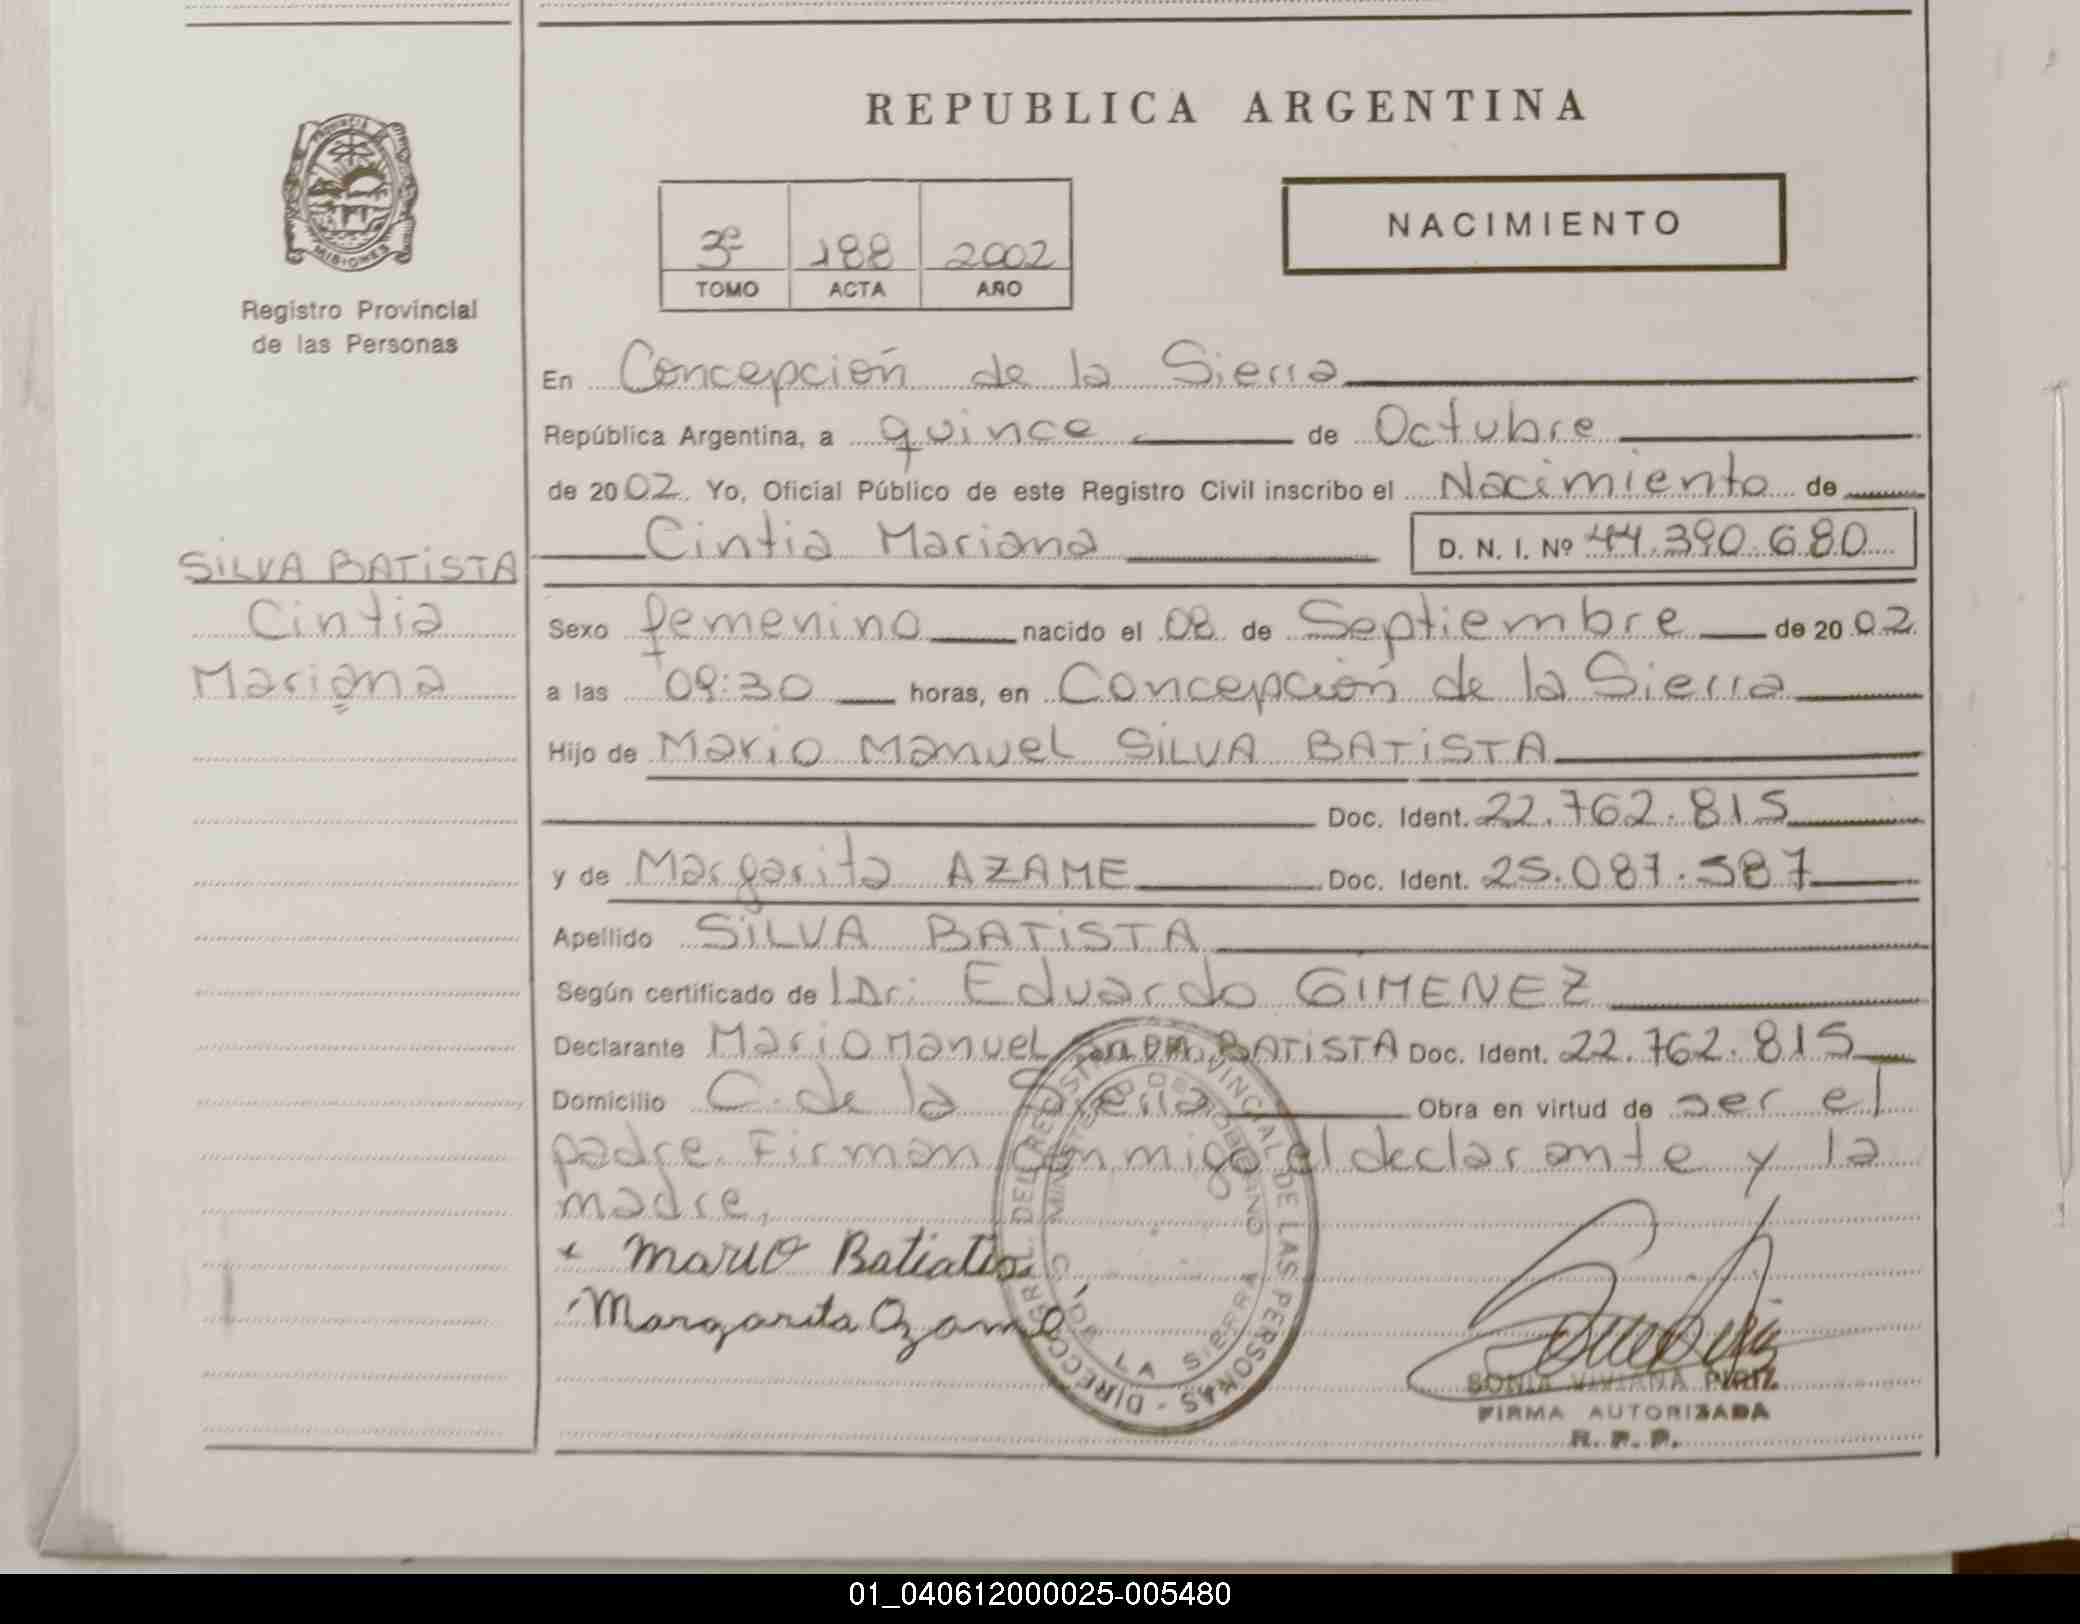 REPUBLICA ARGENTINA
PROVINCIA DE
MISIONES
Registro Provincial
de las Personas
3º 188 2002
TOMO ACTA AÑO
NACIMIENTO
En Concepción de la Sierra
República Argentina, a quince de Octubre
de 2002. Yo, Oficial Público de este Registro Civil inscribo el Nacimiento de
Cintia Mariana D. N. I. Nº 44.390.680
SILVA BATISTA
Cintia
Mariana
Sexo femenino nacido el 08 de Septiembre de 2002
a las 09:30 horas, en Concepción de la Sierra
Hijo de Mario Manuel SILVA BATISTA
Doc. Ident. 22.762.815
y de Margarita AZAME Doc. Ident. 25.087.587
Apellido SILVA BATISTA
Según certificado de Dr: Eduardo GIMENEZ
Declarante Mario Manuel BATISTA Doc. Ident. 22.762.815
Domicilio C. de la Sierra Obra en virtud de ser el
padre. Firman conmigo el declarante y la
madre,
Mario
Margarita Azamé
DIRECC. GRL. DEL REGISTRO PROVINCIAL DE LAS PERSONAS
MINISTERIO DE GOBIERNO
C. DE LA SIERRA
SONIA VIVIANA PIRIZ
FIRMA AUTORIZADA
R. P. P.
01_040612000025-005480